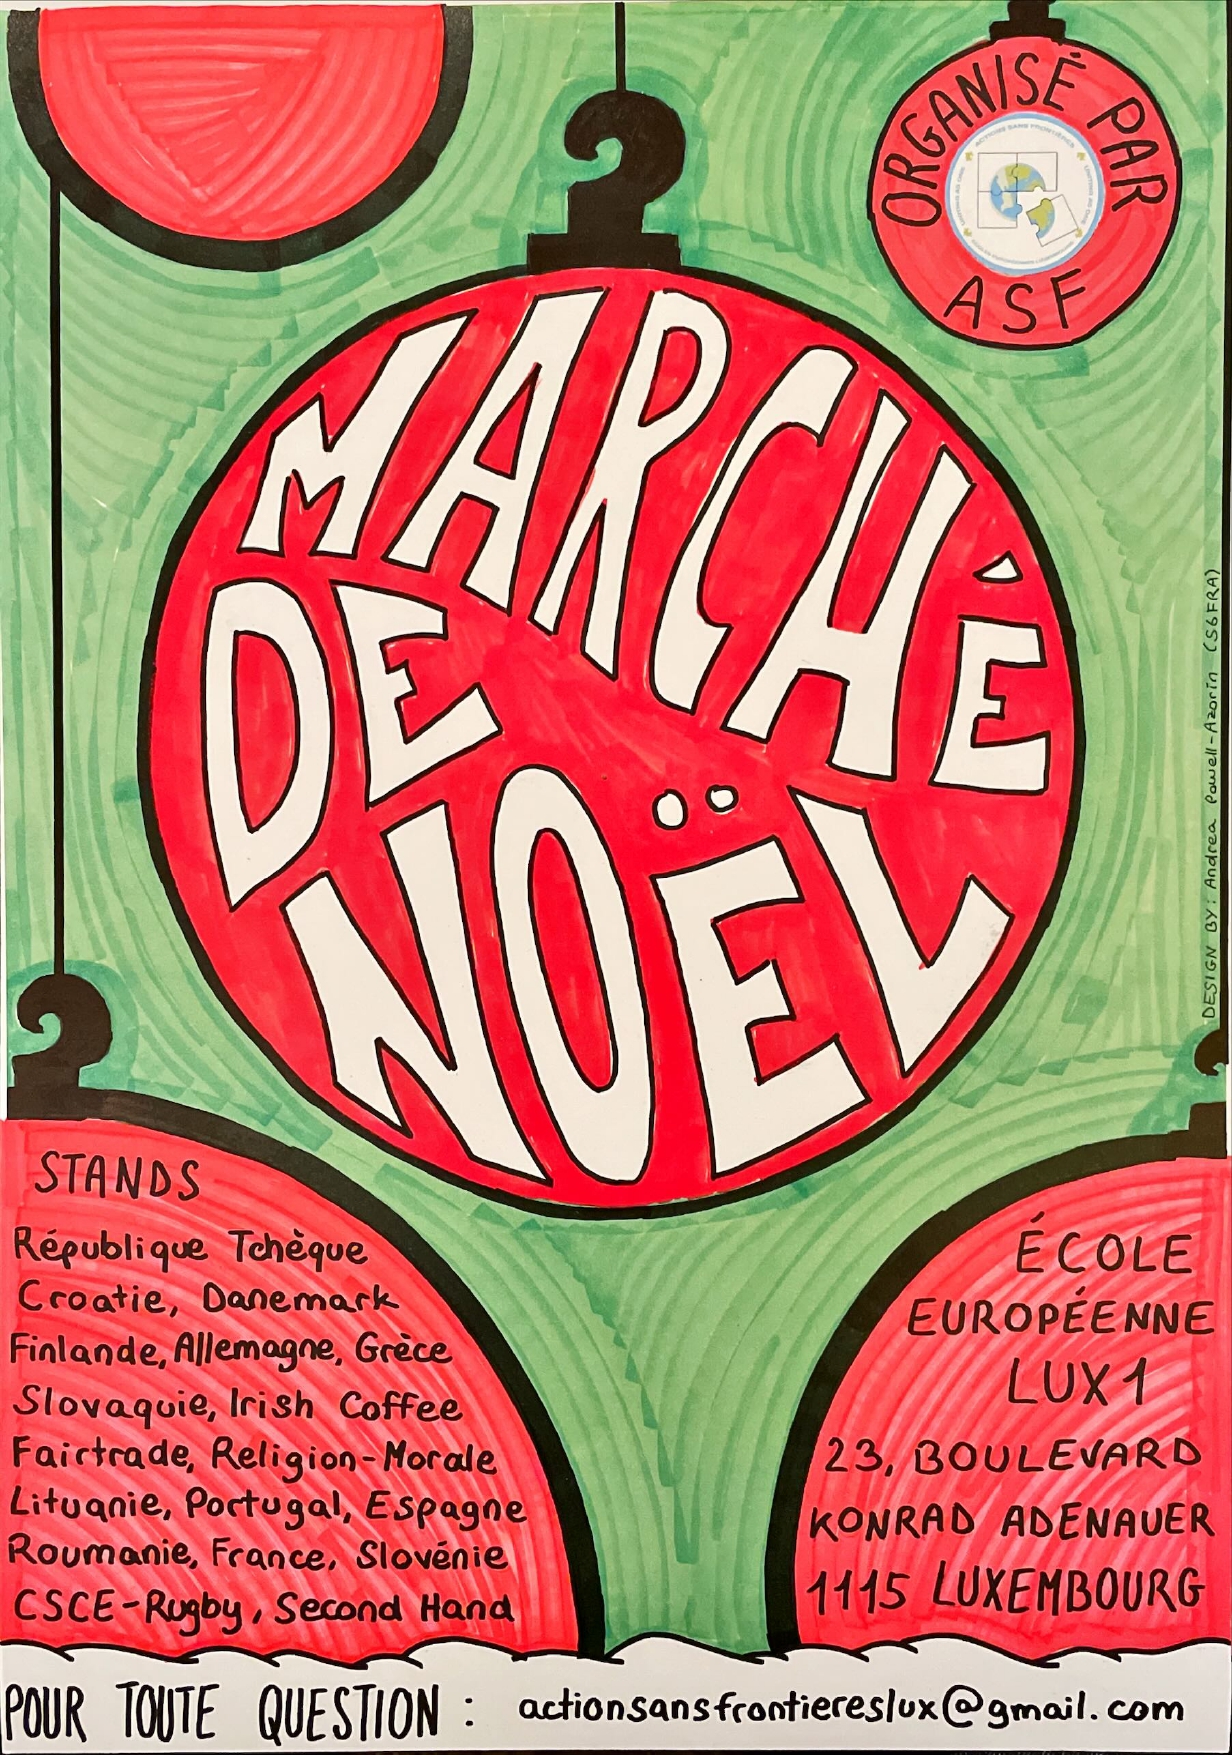 ORGANISÉ PAR
ACTIONS SANS FRONTIÈRES
ASF
MARCHÉ
DE
NOËL
DESIGN BY: Andrea Powell-Azorín (S6FRA)
STANDS
République Tchèque
Croatie, Danemark
Finlande, Allemagne, Grèce
Slovaquie, Irish Coffee
Fairtrade, Religion-Morale
Lituanie, Portugal, Espagne
Roumanie, France, Slovénie
CSCE-Rugby, Second Hand
ÉCOLE
EUROPÉENNE
LUX1
23, BOULEVARD
KONRAD ADENAUER
1115 LUXEMBOURG
POUR TOUTE QUESTION : actionsansfrontiereslux@gmail.com